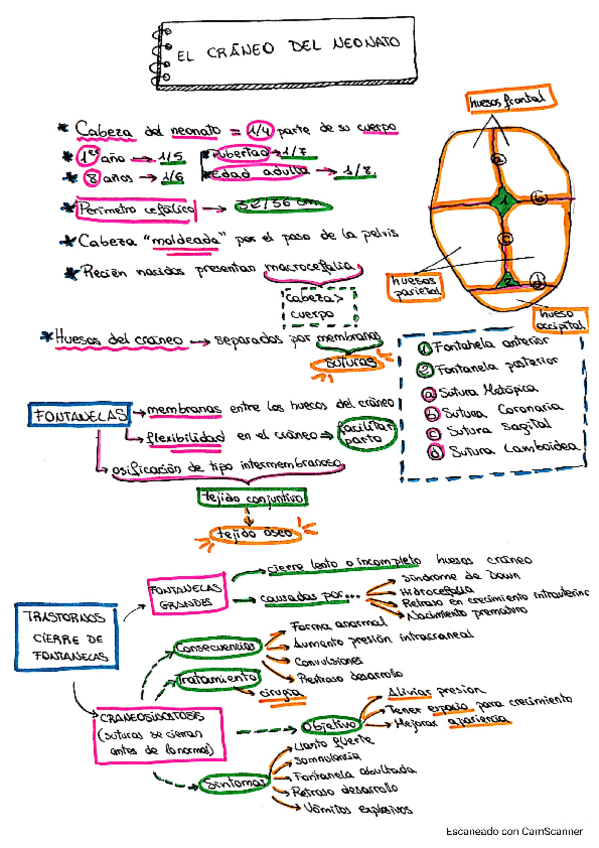 EL CRÁNEO DEL NEONATO
* Cabeza del neonato = 1/4 parte de su cuerpo
* 1er año → 1/5 * Pubertad → 1/7
* 8 años → 1/6 * Edad adulta → 1/8.
* Perímetro cefálico → 32/36 cm
* Cabeza "moldeada" por el paso de la pelvis
* Recién nacidos presentan macrocefalia
cabeza>
cuerpo
* Huesos del cráneo → separados por membranas
suturas
huesos frontal
a
1
b
c
2
d
huesos
parietal
hueso
occipital
1 Fontanela anterior
2 Fontanela posterior
a Sutura Metópica
b Sutura Coronaria
c Sutura Sagital
d Sutura Lamboidea
FONTANELAS → membranas entre los huecos del cráneo
→ flexibilidad en el cráneo ⇒ facilitar
parto
→ osificación de tipo intermembranoso
tejido conjuntivo
tejido óseo
TRASTORNOS
CIERRE DE
FONTANELAS
FONTANELAS
GRANDES
cierre lento o incompleto huesos cráneo
causadas por...
Síndrome de Down
Hidrocefalia
Retraso en crecimiento intrauterino
Nacimiento prematuro
CRANEOSINOSTOSIS
(suturas se cierran
antes de lo normal)
Consecuencias
Forma anormal
Aumento presión intracraneal
Convulsiones
Retraso desarrollo
Tratamiento → cirugía
Objetivo
Aliviar presión
Tener espacio para crecimiento
Mejorar apariencia
Síntomas
Llanto fuerte
Somnolencia
Fontanela abultada
Retraso desarrollo
Vómitos explosivos
Escaneado con CamScanner